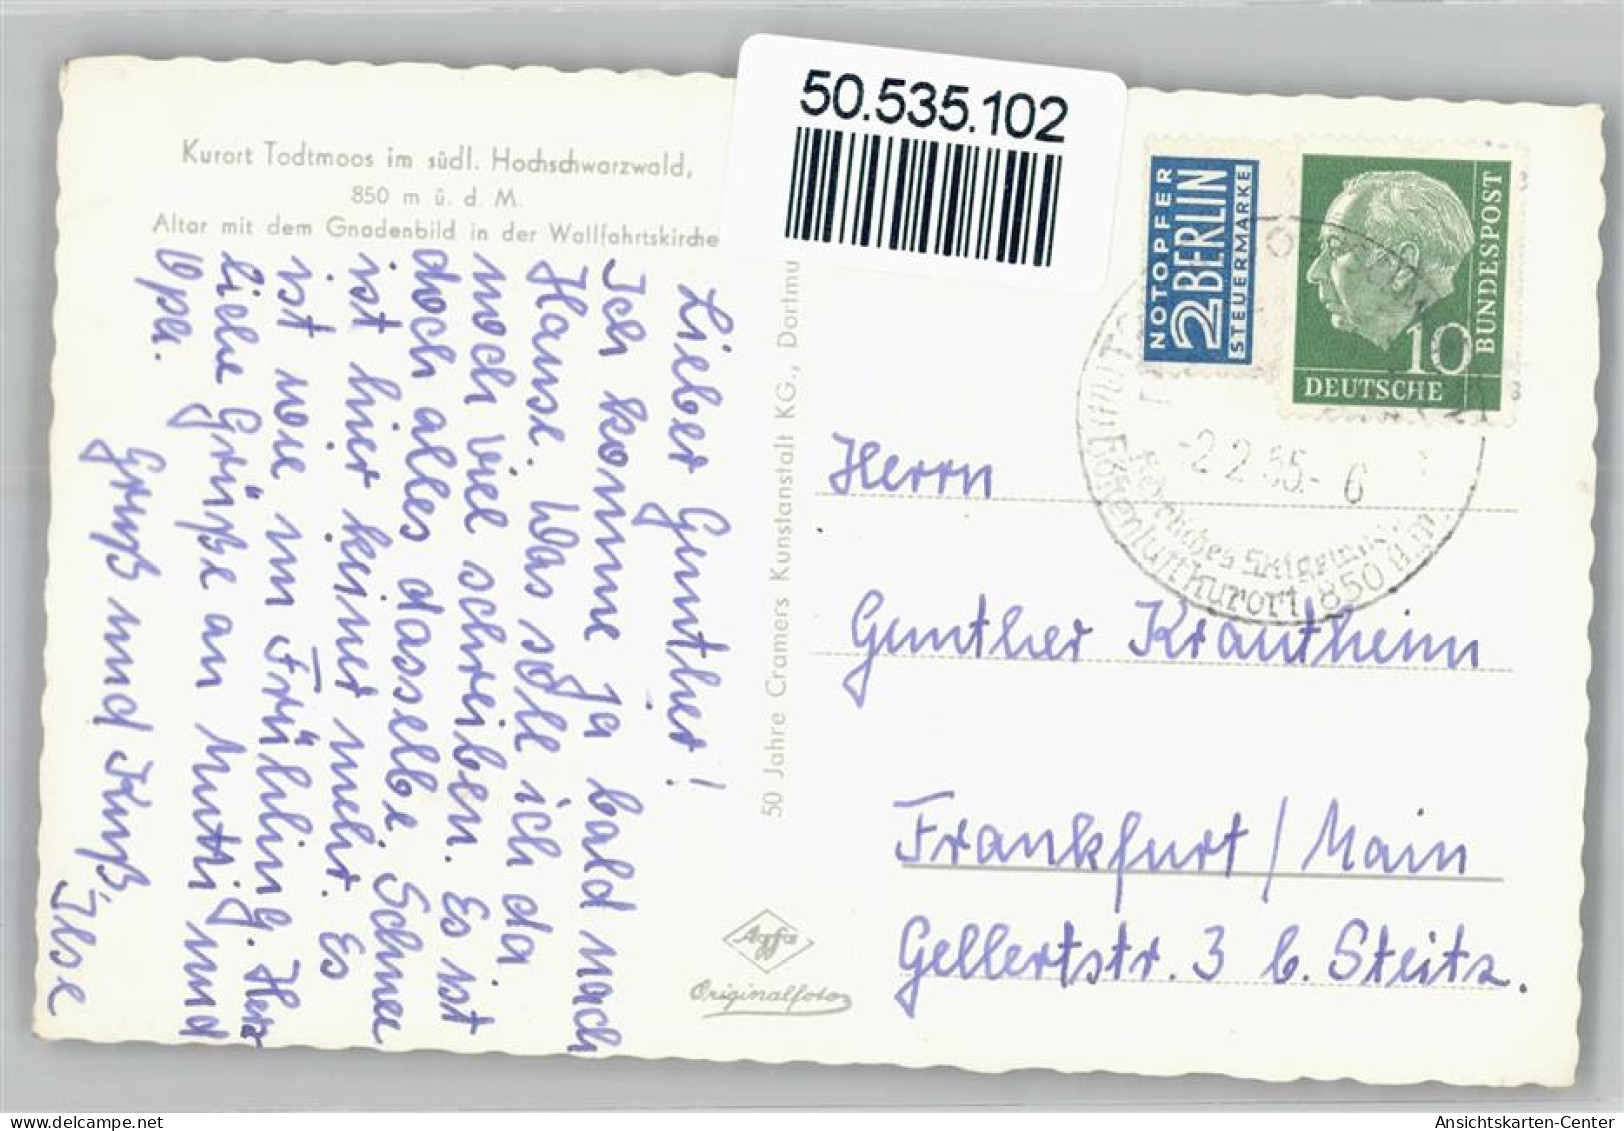 Kurort Todtmoos im südl. Hochschwarzwald,
850 m ü. d. M.
Altar mit dem Gnadenbild in der Wallfahrtskirche
50.535.102
NOTOPFER
2 BERLIN
STEUERMARKE
DEUTSCHE
BUNDESPOST
10
-2.2.55.- 6
Höhenluftkurort 850 m
Lieber Gunther!
Ich komme ja bald nach
Hause. Was soll ich da
noch viel schreiben. Es ist
doch alles dasselbe. Schnee
ist hier keiner mehr. Es
ist wie im Frühling. Herz
liche Grüße an Mutti und
Opa.
Gruß und Kuß,
Ilse
50 Jahre Cramers Kunstanstalt KG., Dortmu
Agfa
Originalfoto
Herrn
Gunther Krautheim
Frankfurt/Main
Gellertstr. 3 b. Steitz.
Ansichtskarten-Center